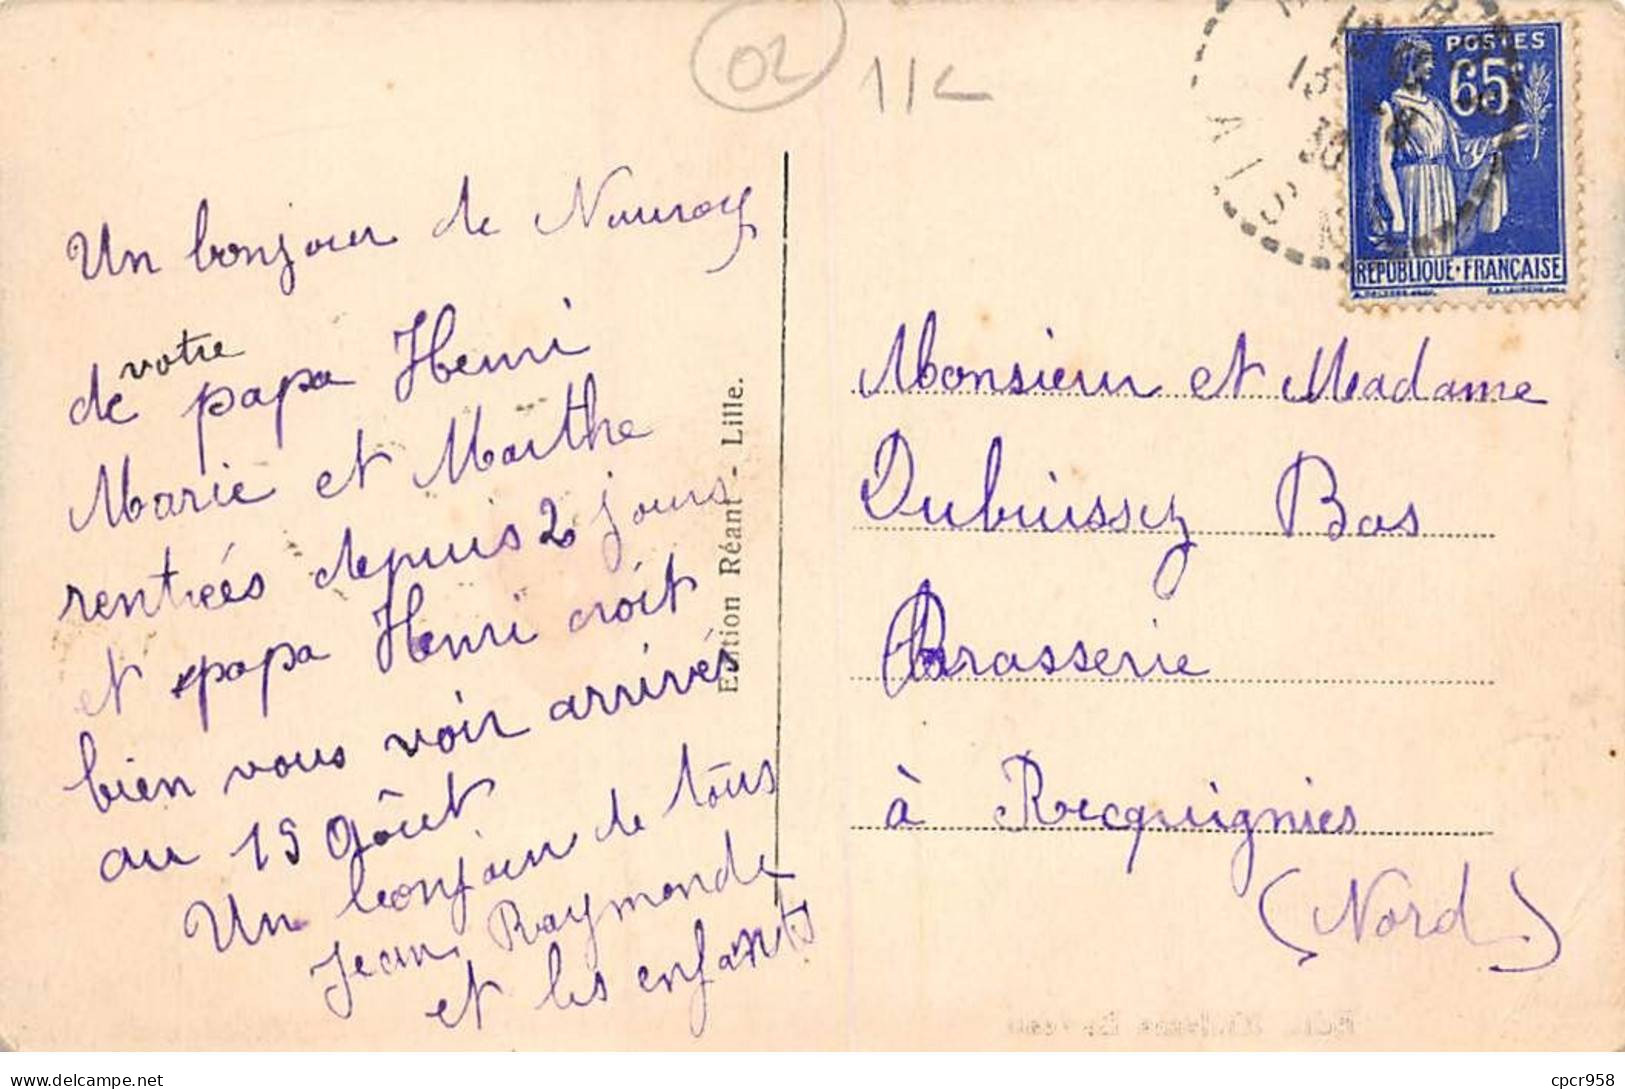 02
11L
POSTES
65c
REPUBLIQUE·FRANÇAISE
Un bonjour de Nauroy
votre
de papa Henri
Marie et Marthe
rentrées depuis 2 jours
et papa Henri croit
bien vous voir arrivés
au 15 Aôut
Un bonjour de tous
Jean, Raymonde
et les enfants
Edition Réant - Lille.
Monsieur et Madame
Dubuissez Bas
Brasserie
à Recquignies
(Nord)
cpcr958